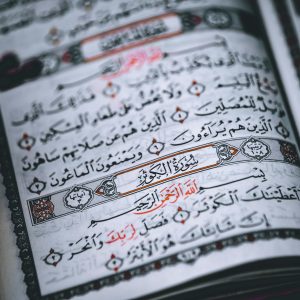 سُورَةُ الْمَاعُونِ
بِسْمِ اللَّهِ الرَّحْمَٰنِ الرَّحِيمِ
الَّذِي يُكَذِّبُ بِالدِّينِ فَذَٰلِكَ الَّذِي
الْيَتِيمَ وَلَا يَحُضُّ عَلَىٰ طَعَامِ الْمِسْكِينِ
فَوَيْلٌ لِلْمُصَلِّينَ الَّذِينَ هُمْ عَنْ صَلَاتِهِمْ سَاهُونَ
الَّذِينَ هُمْ يُرَاءُونَ وَيَمْنَعُونَ الْمَاعُونَ
سُورَةُ الْكَوْثَرِ
بِسْمِ اللَّهِ الرَّحْمَٰنِ الرَّحِيمِ
أَعْطَيْنَاكَ الْكَوْثَرَ فَصَلِّ لِرَبِّكَ وَانْحَرْ
إِنَّ شَانِئَكَ هُوَ الْأَبْتَرُ